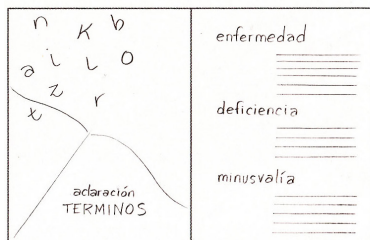 n K b
a i L O
z
x r
aclaración
TERMINOS
enfermedad
deficiencia
minusvalía